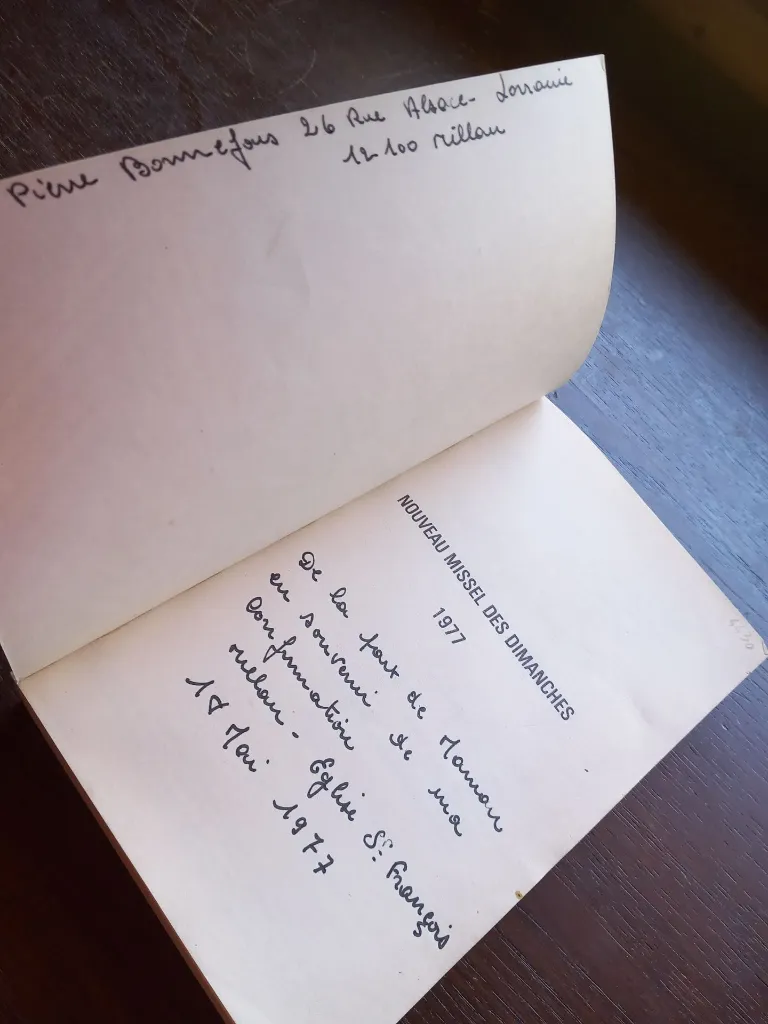 Pierre Bonnefous 26 Rue Alsace-Lorraine
12100 Millau
NOUVEAU MISSEL DES DIMANCHES
1977
De la part de Maman
en souvenir de ma
Confirmation
Millau - Eglise St François
18 Mai 1977